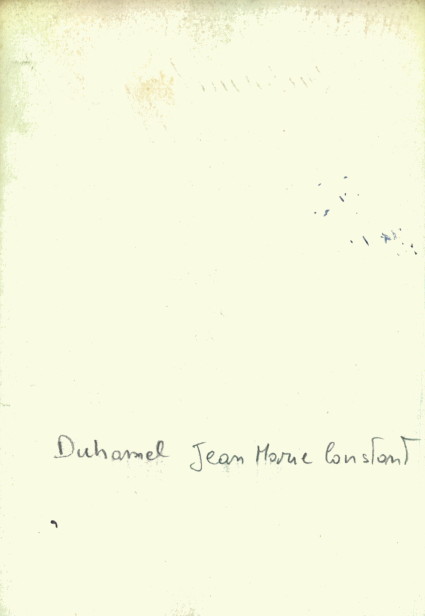 Duhamel Jean Marie Constant